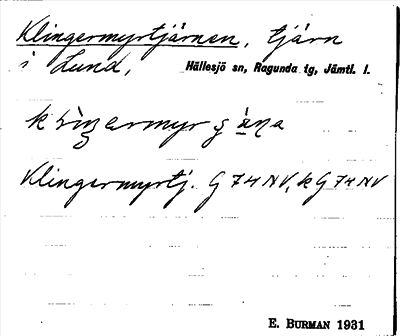 Klingermyrtjärnen, tjärn
i Lund, Hällesjö sn, Ragunda tg, Jämtl. l.
Klingermyrtj. G 74 NV, k G 74 NV
E. BURMAN 1931